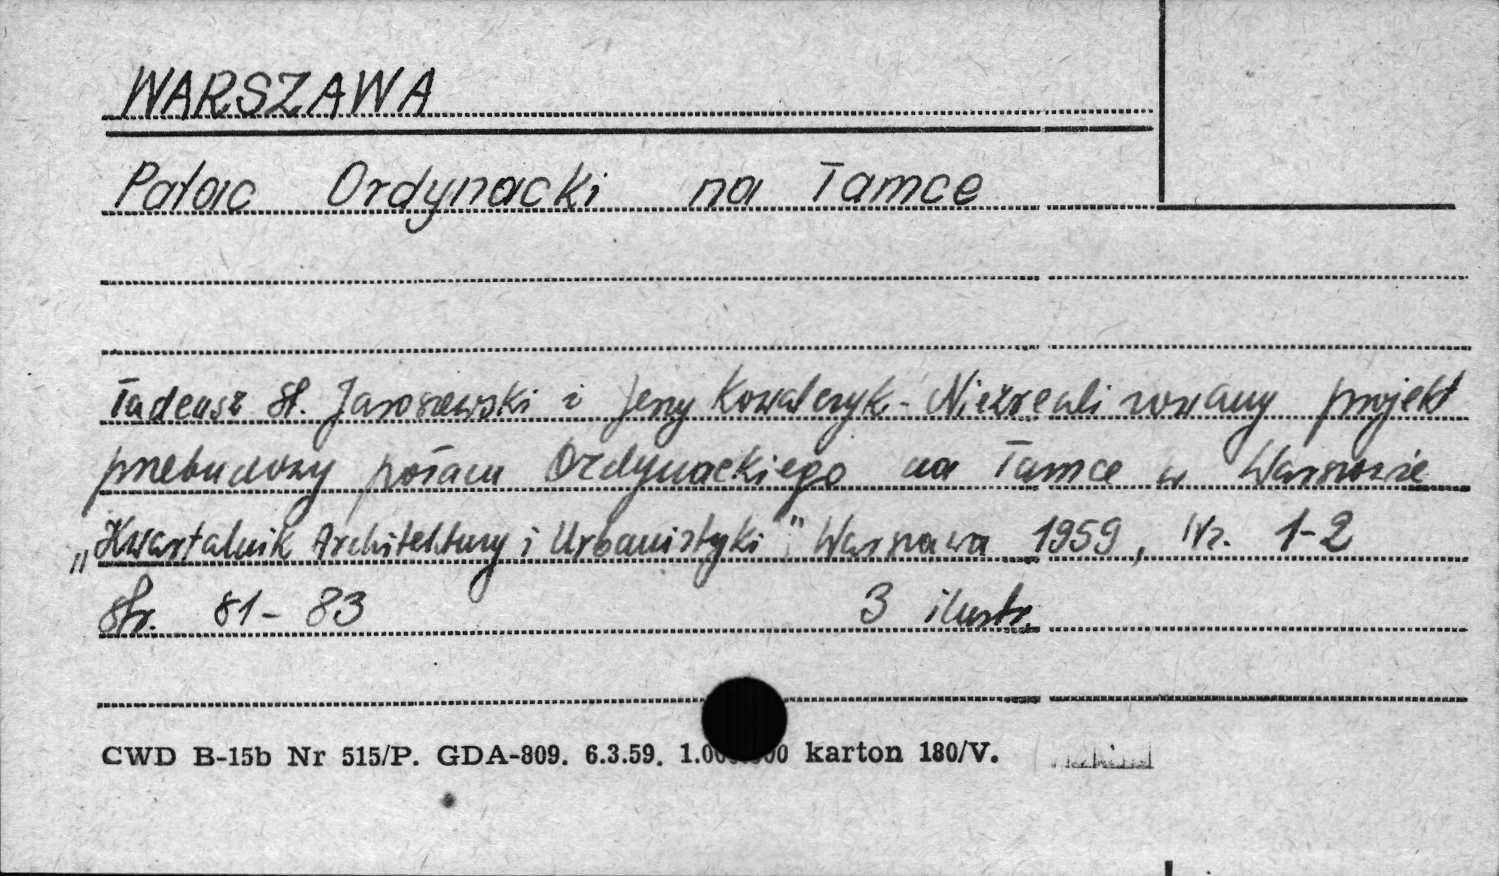 WARSZAWA
Pałac Ordynacki na Tamce
Tadeusz St. Jaroszewski i Jerzy Kowalczyk - Niezrealizowany projekt
przebudowy pałacu Ordynackiego na Tamce w Warszawie
„Kwartalnik Architektury i Urbanistyki" Warszawa 1959, Nr. 1-2
Str. 81-83 3 ilustr.
CWD B-15b Nr 515/P. GDA-809. 6.3.59. karton 180/V.